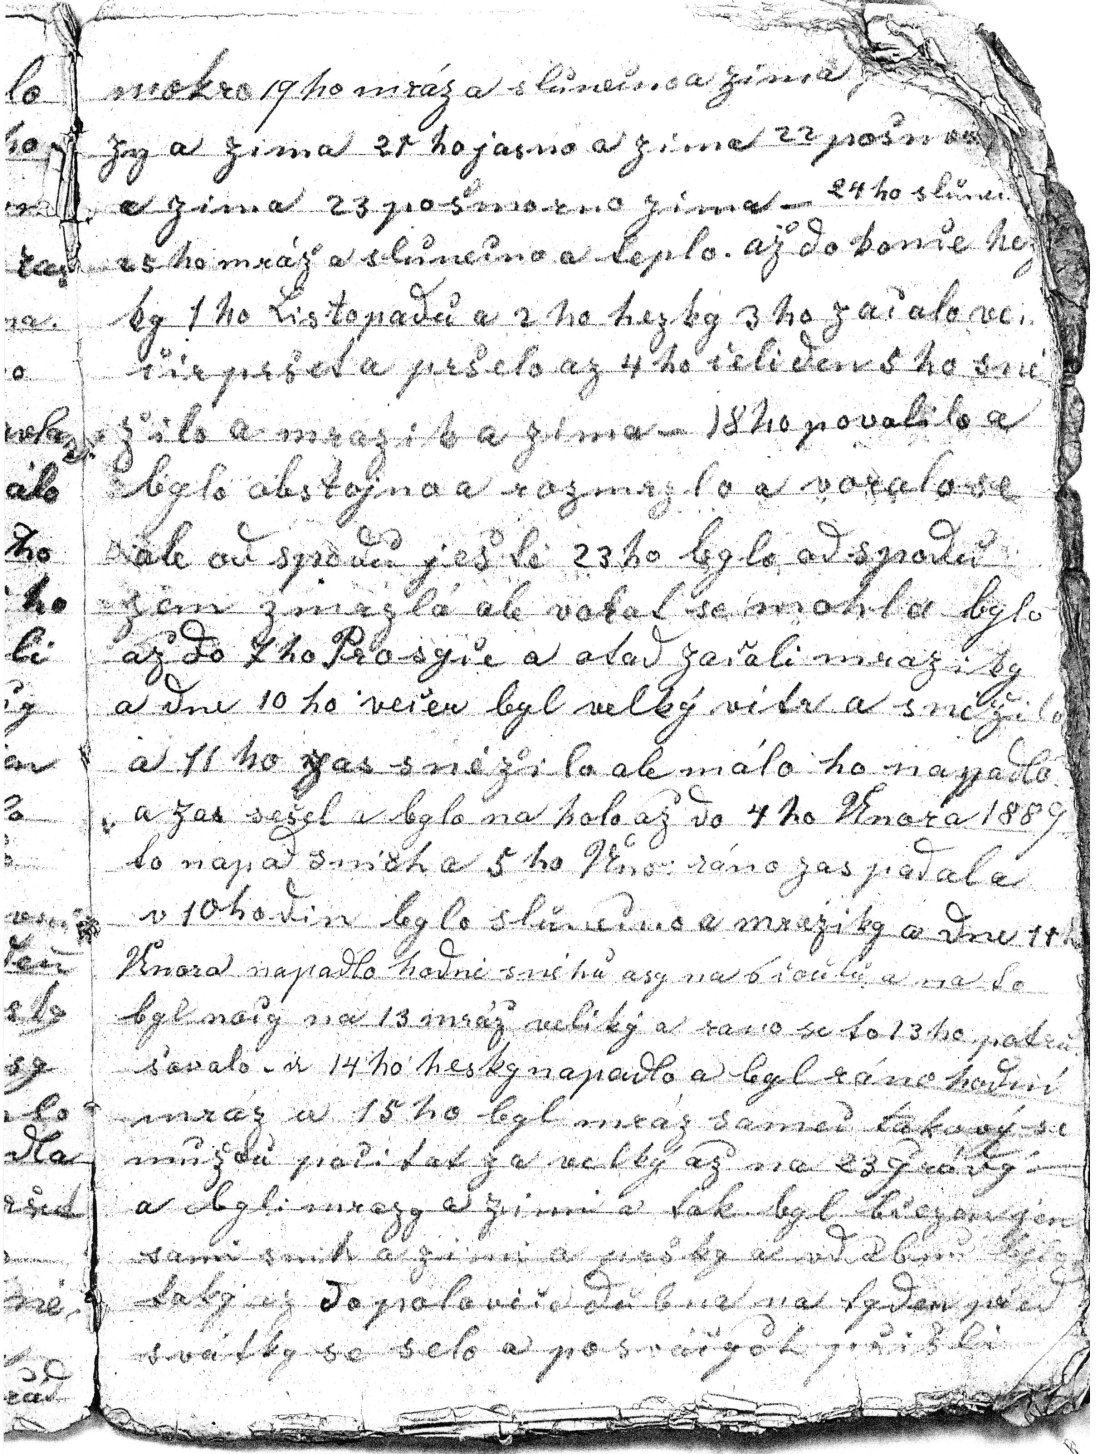 mokro 19 ho mráz a slunečno a zima
zy a zima 21 ho jasno a zima 22 pošmor
a zima 23 pošmorno zima – 24 ho sluneč
25 ho mráz a slunečno a teplo. až do konce hez
ky 1 ho Listopadu a 2 ho hezky 3 ho začalo ve
čir pršet a pršelo az 4 ho celi den 5 ho sně
žilo a mrazik a zima – 18 ho povolilo a
bylo obstojno a rozmrzlo a voralo se
ale od spodu ješte 23 ho bylo od spodu
zem zmrzlá ale vorat se mohla bylo
až do 7 ho Prosyče a otad začali mraziky
a dne 10 ho večer byl velký vitr a sněžilo
a 11 ho zas sněžilo ale málo ho napadlo
a zas sešel a bylo na holo až do 4 ho Unora 1889
to napad snich a 5 ho Uno. ráno zas padal a
v 10 hodin bylo slunečno a mraziky a dne 11 h
Unora napadlo hodně sněhu asy na 6 coulu a na to
byl nocy na 13 mráz veliký a rano se to 13 ho potru
šovalo. 14 ho hesky napadlo a byl ráno hodní
mráz a 15 ho byl mráz samec takový se
mužeu počitat za velký až na 23 grády
a byli mrazy a zimi a tak byl březen jen
sami snih a zimi a pršky a
taky až do polovice dubna na tyden před
svátky se selo a po svácych přišli